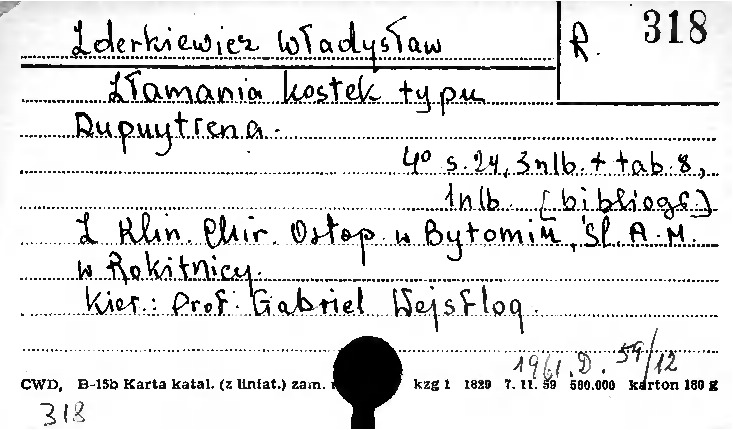 Zderkiewicz Władysław
R. 318
Złamania kostek typu
Dupuytrena.
4° s. 24, 3 nlb. + tab. 8,
1 nlb. [bibliogr.]
Z Klin. Chir. Ortop. w Bytomiu, Śl. A. M.
w Rokitnicy.
Kier.: Prof. Gabriel Wejsflog.
1961. D. 59/12
CWD, B-15b Karta katal. (z liniat.) zam. kzg 1 1829 7. 11. 59 500.000 karton 180 g
318